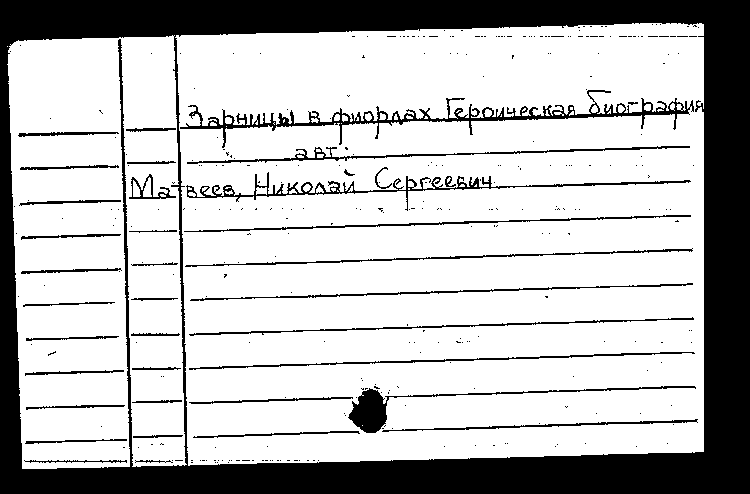 Зарницы в фиордах Героическая биография
авт.:
Матвеев, Николай Сергеевич